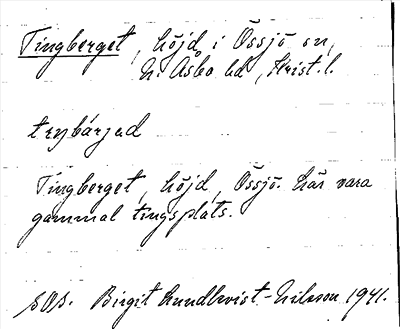 Tingberget, höjd i Össjö sn,
N. Åsbo hd, Krist. l.
Tingberget, höjd, Össjö. Här vara
gammal tingsplats.
SOS. Birgit Lundkvist-Nilsson 1941.